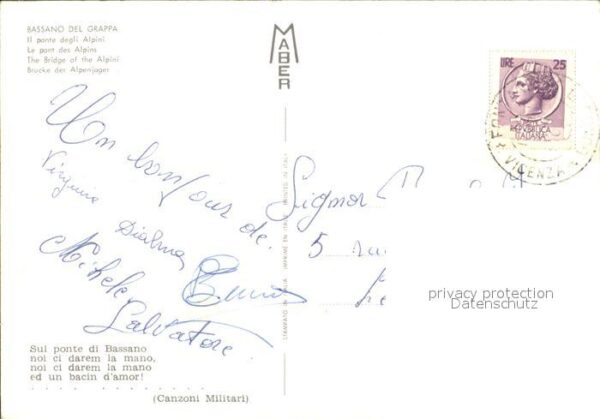 BASSANO DEL GRAPPA
Il ponte degli Alpini
Le pont des Alpins
The Bridge of the Alpini
Brucke der Alpenjager
MABER
LIRE 25
REPUBBLICA
ITALIANA
VICENZA
Un bonjour de
Virginie
Dialma
Michele
Salvatore
Signor
5 rue
STAMPATO IN ITALIA IMPRIMÉ EN ITALIE PRINTED IN ITALY
privacy protection
Datenschutz
Sul ponte di Bassano
noi ci darem la mano,
noi ci darem la mano
ed un bacin d'amor!
. . . . . . . . . . . . .
(Canzoni Militari)